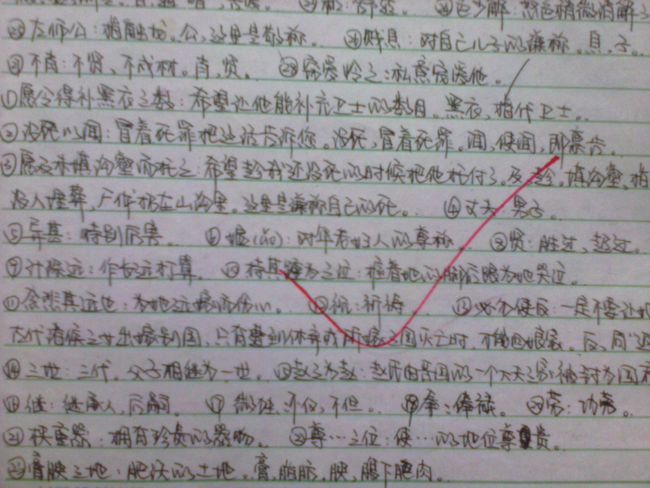 ㉔左师公：指触龙。公，这里是敬称。 贱息：对自己儿子的谦称。息，子。
不肖：不贤，不成材。肖，贤。 窃爱怜之：私意窃爱他。
①愿令得补黑衣之数：希望让他能补充卫士的数目。黑衣，指代卫士。
②没死以闻：冒着死罪把这话告诉您。没死，冒着死罪。闻，使闻，即禀告。
③愿及未填沟壑而托之：希望趁我还没死的时候把他托付了。及，趁。填沟壑，指
没人埋葬，尸体扔在山沟里。这里是谦称自己的死。 ④丈夫：男子。
⑤异甚：特别厉害。 ⑥媪(ǎo)：对年老妇人的尊称。 贤：胜过，超过。
计深远：作长远打算。 持其踵为之泣：握着她的脚后跟为她哭泣。
⑪念悲其远也：为她远嫁而伤心。 祝：祈祷。 必勿使反：一定不要让她
古代诸侯之女出嫁别国，只有遭到休弃或所嫁之国灭亡时，才能回娘家。反，同“返
⑭三世：三代。父子相继为一世。 赵之为赵：赵氏由晋国的一个大夫之家被封为国
继：继承人，后嗣。 ⑰微独：不仅，不但。 奉：俸禄。 劳：功劳。
㉑挟重器：拥有珍贵的器物。 尊…之位：使…的地位尊贵。
膏腴之地：肥沃的土地。膏，脂肪。腴，腹下肥肉。